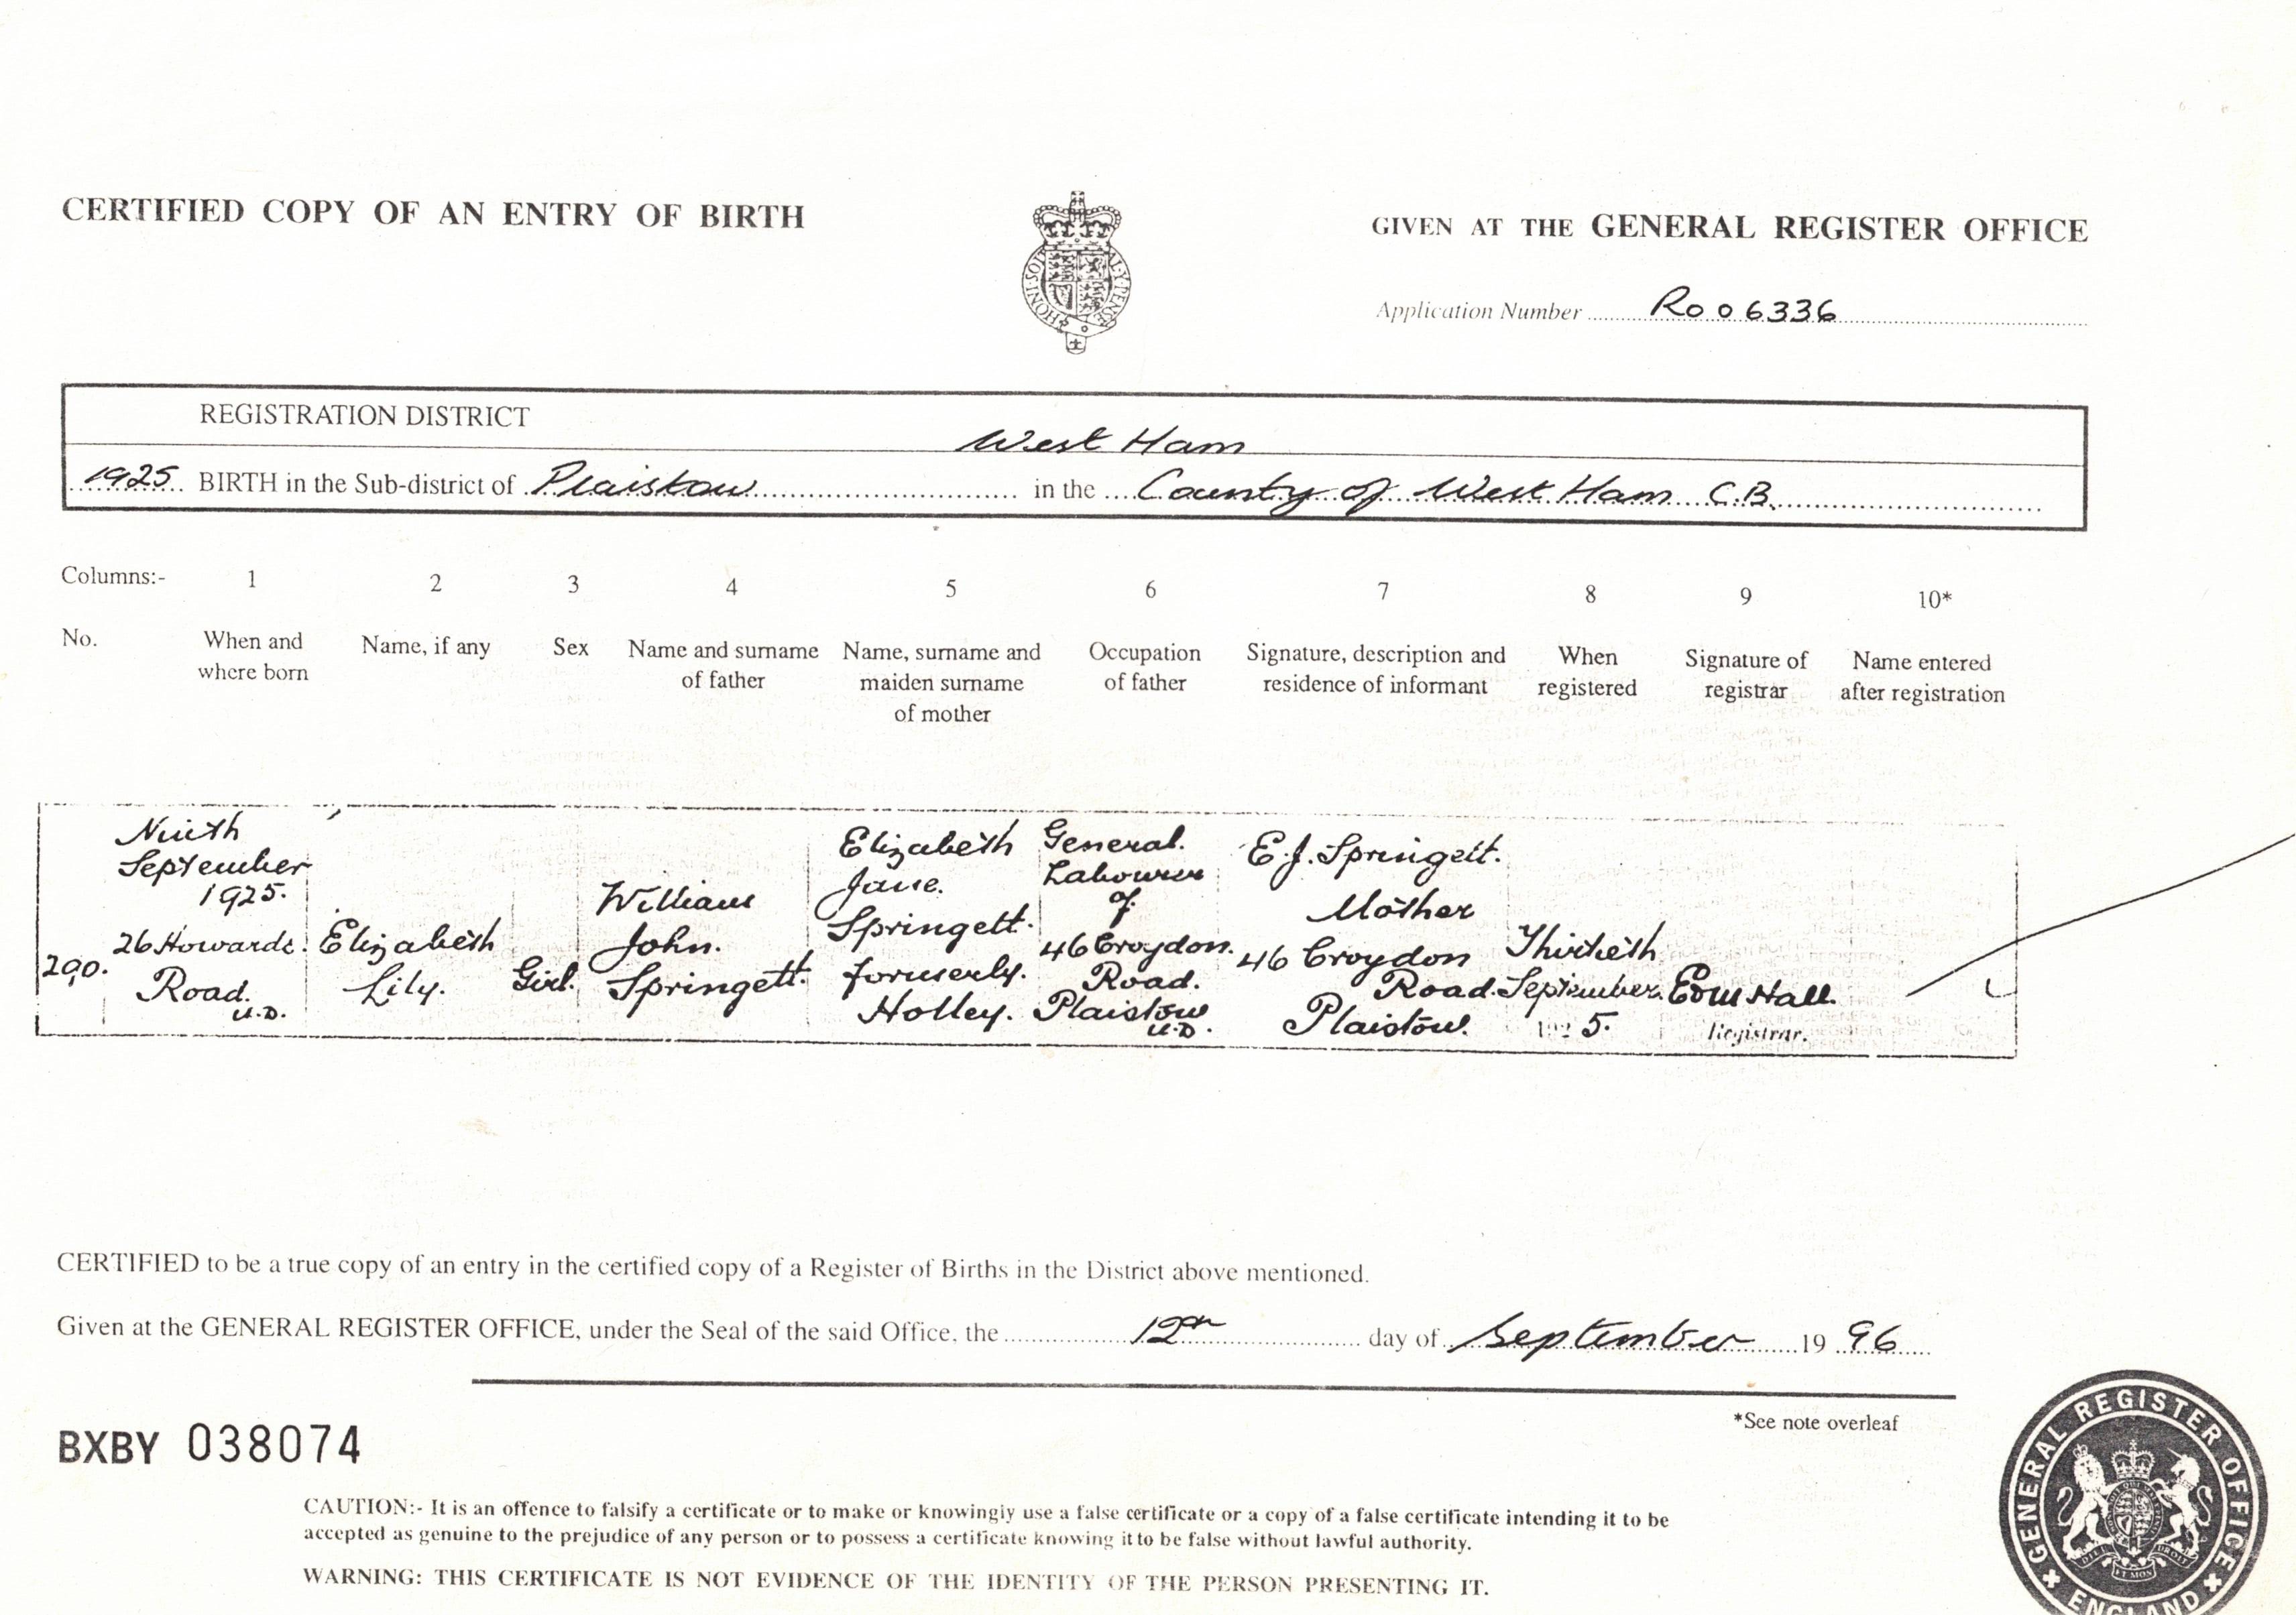 CERTIFIED COPY OF AN ENTRY OF BIRTH
HONI·SOI AL·Y·PENSE
GIVEN AT THE GENERAL REGISTER OFFICE
Application Number R006336
REGISTRATION DISTRICT West Ham
1925 BIRTH in the Sub-district of Plaistow in the County of West Ham C.B.
Columns:- 1 2 3 4 5 6 7 8 9 10*
No.
When and
where born
Name, if any
Sex
Name and surname
of father
Name, surname and
maiden surname
of mother
Occupation
of father
Signature, description and
residence of informant
When
registered
Signature of
registrar
Name entered
after registration
290.
Ninth
September
1925.
26 Howards
Road.
U.D.
Elizabeth
Lily.
Girl.
William
John.
Springett.
Elizabeth
Jane.
Springett.
formerly.
Holley.
General.
Labourer
of
46 Croydon.
Road.
Plaistow
U.D.
E.J. Springett.
Mother
46 Croydon
Road.
Plaistow.
Thirtieth
September.
1925.
Hall.
Registrar.
CERTIFIED to be a true copy of an entry in the certified copy of a Register of Births in the District above mentioned.
Given at the GENERAL REGISTER OFFICE, under the Seal of the said Office, the 12th day of September 1996
*See note overleaf
BXBY 038074
CAUTION:- It is an offence to falsify a certificate or to make or knowingly use a false certificate or a copy of a false certificate intending it to be
accepted as genuine to the prejudice of any person or to possess a certificate knowing it to be false without lawful authority.
WARNING: THIS CERTIFICATE IS NOT EVIDENCE OF THE IDENTITY OF THE PERSON PRESENTING IT.
GENERAL REGISTER OFFICE
ENGLAND